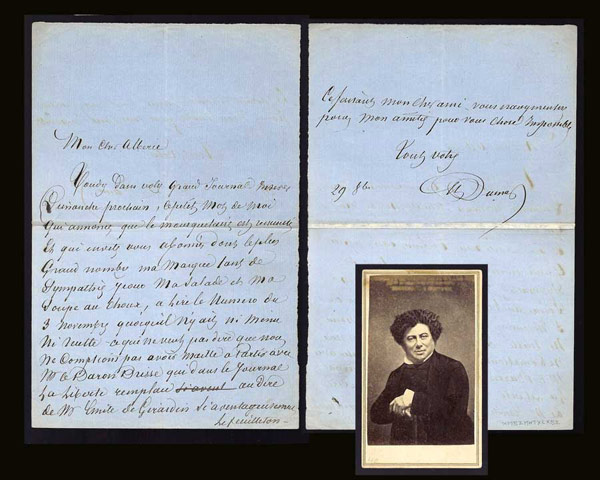 Mon cher Alberic
Voudy dans votre Grand Journal
Dimanche prochain, le petit Mot de moi
Qui annonce que le mousquetaire est ressuscité
Et qui invite vos abonnés dont le plus
Grand nombre me Marque tant de
Sympathie pour Ma Salade et Ma
Soupe au Choux, a Lire le Numero du
3 novembre quoiqu'il n'y ait ni Menu
Ni recette - a qui ne veut pas dire que nous
Ne Comptions pas avoir maille a Partir avec
Mr le Baron Brisse qui dans le Journal
La Liberté remplace si avant au dire
de Mr Emile de Girardin si avantageusement
le feuilleton -
Ce faisant, mon cher ami - vous n'augmenterez
pas mon amitié pour vous chose impossible,
Tout votre
29 8bre Al Dumas